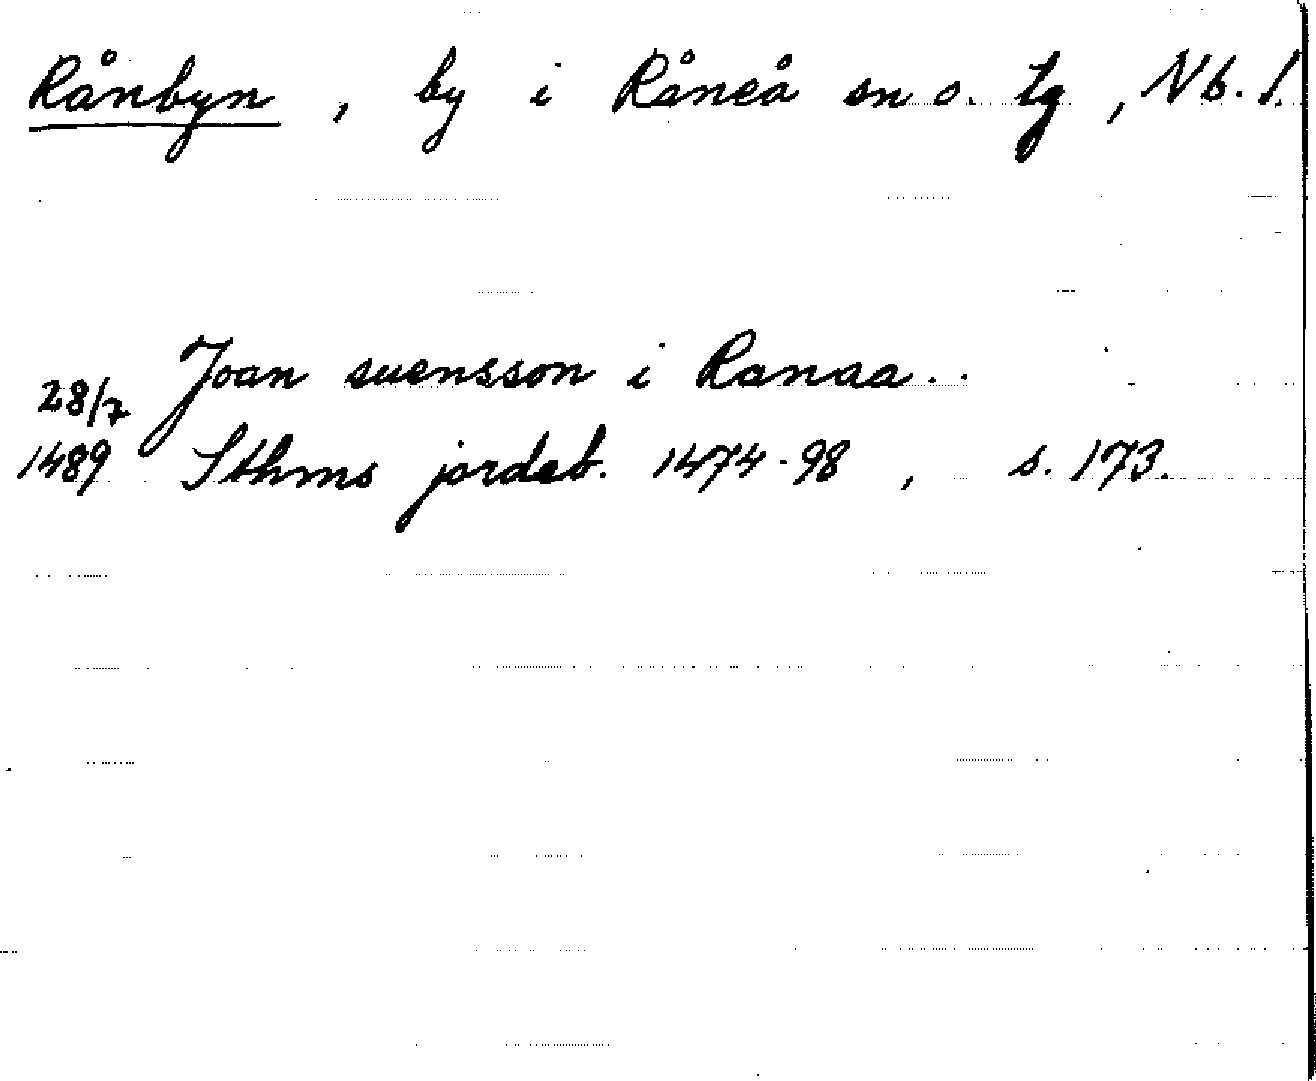 Rånbyn, by i Råneå sn o. tg, Nb. l.
28/7 Joan suensson i Ranaa..
1489 Sthms jordeb. 1474-98, s. 173.